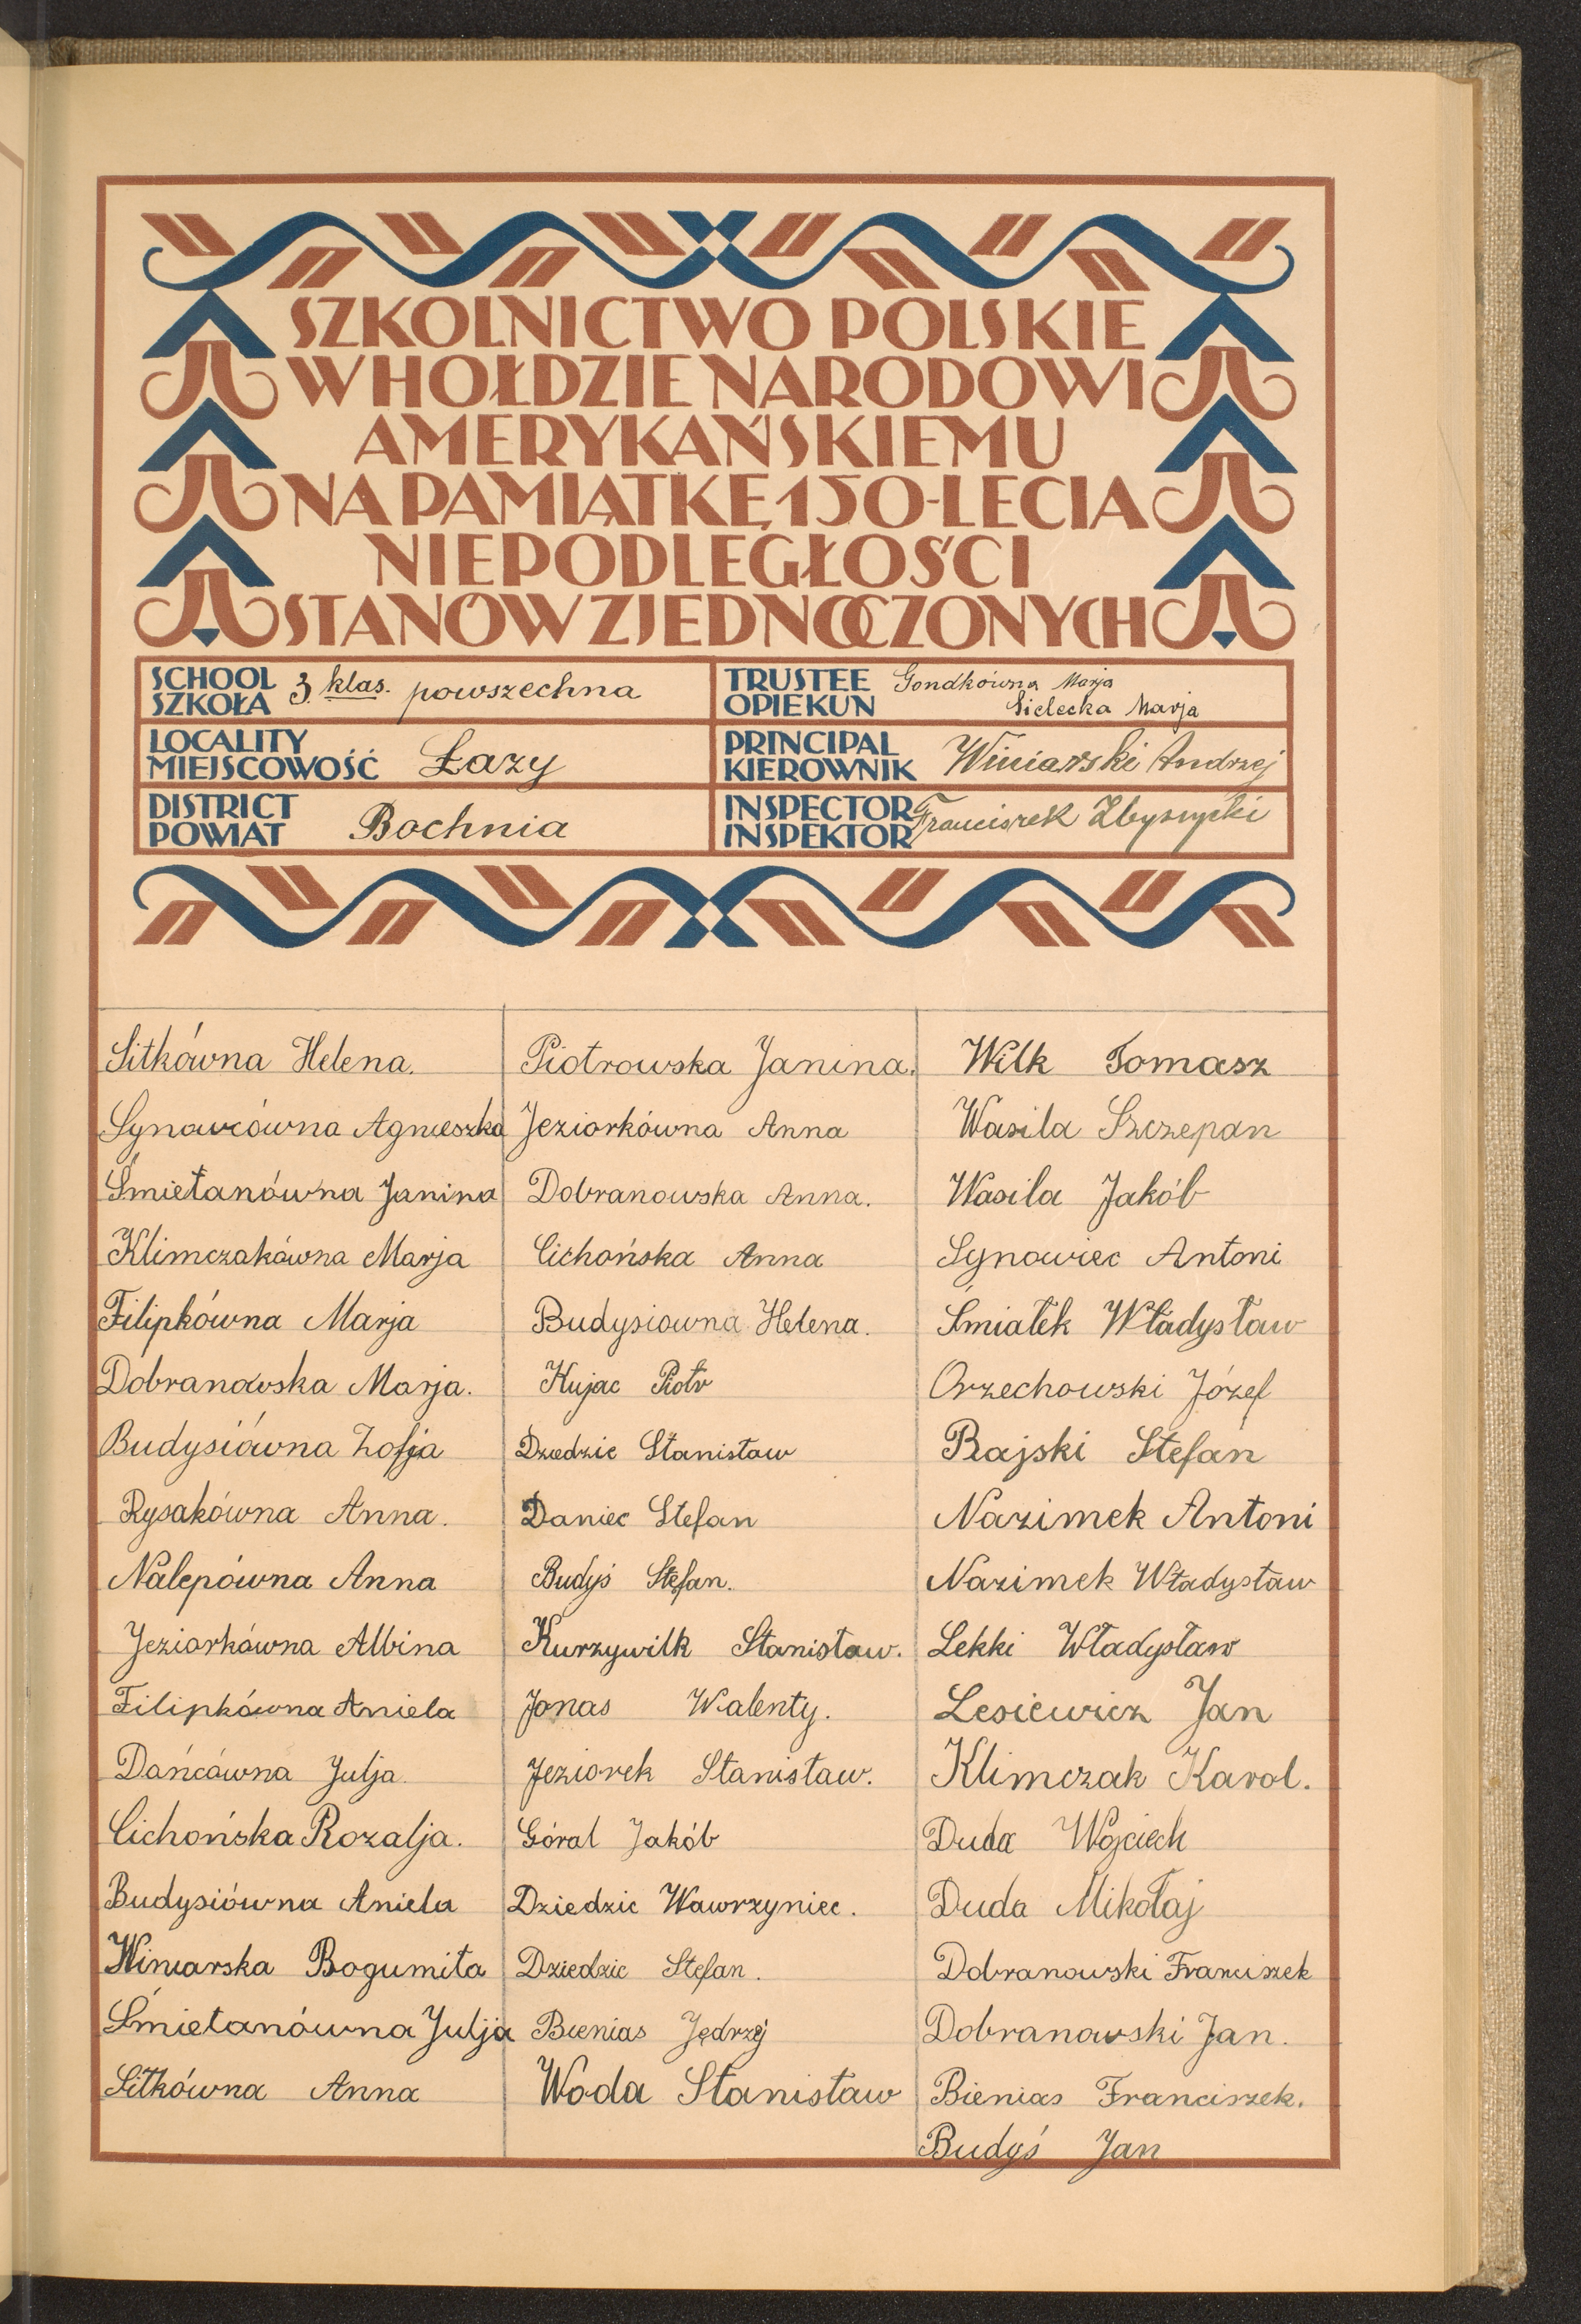 SZKOLNICTWO POLSKIE
W HOŁDZIE NARODOWI
AMERYKAŃSKIEMU
NA PAMIĄTKĘ 150-LECIA
NIEPODLEGŁOŚCI
STANÓW ZJEDNOCZONYCH
SCHOOL
SZKOŁA
3. klas. powszechna
TRUSTEE
OPIEKUN
Gondkówna Marja
Sielecka Marja
LOCALITY
MIEJSCOWOŚĆ
Łazy
PRINCIPAL
KIEROWNIK
Winiarski Andrzej
DISTRICT
POWIAT
Bochnia
INSPECTOR
INSPEKTOR
Franciszek
Sitkówna Helena.
Synowcówna Agnieszka
Śmietanówna Janina
Klimczakówna Marja
Filipkówna Marja
Dobranowska Marja.
Budysiówna Zofja
Rysakówna Anna.
Nalepówna Anna
Jeziorkówna Albina
Filipkówna Aniela
Dańcówna Julja.
Cichońska Rozalja.
Budysiówna Aniela
Winiarska Bogumiła
Śmietanówna Julja
Sitkówna Anna
Piotrowska Janina.
Jeziorkówna Anna
Dobranowska Anna.
Cichońska Anna
Budysiowna Helena.
Kujac Piotr
Dziedzic Stanisław
Daniec Stefan
Budyś Stefan.
Kurzywilk Stanisław.
Jonas Walenty.
Jeziorek Stanisław.
Góral Jakób
Dziedzic Wawrzyniec.
Dziedzic Stefan.
Bienias Jędrzej
Woda Stanisław
Wilk Tomasz
Wasila Szczepan
Wasila Jakób
Synowiec Antoni
Śmiałek Władysław
Orzechowski Józef
Rajski Stefan
Nazimek Antoni
Nazimek Władysław
Lekki Władysław
Lesiewicz Jan
Klimczak Karol.
Duda Wojciech
Duda Mikołaj
Dobranowski Franciszek
Dobranowski Jan.
Bienias Franciszek.
Budyś Jan